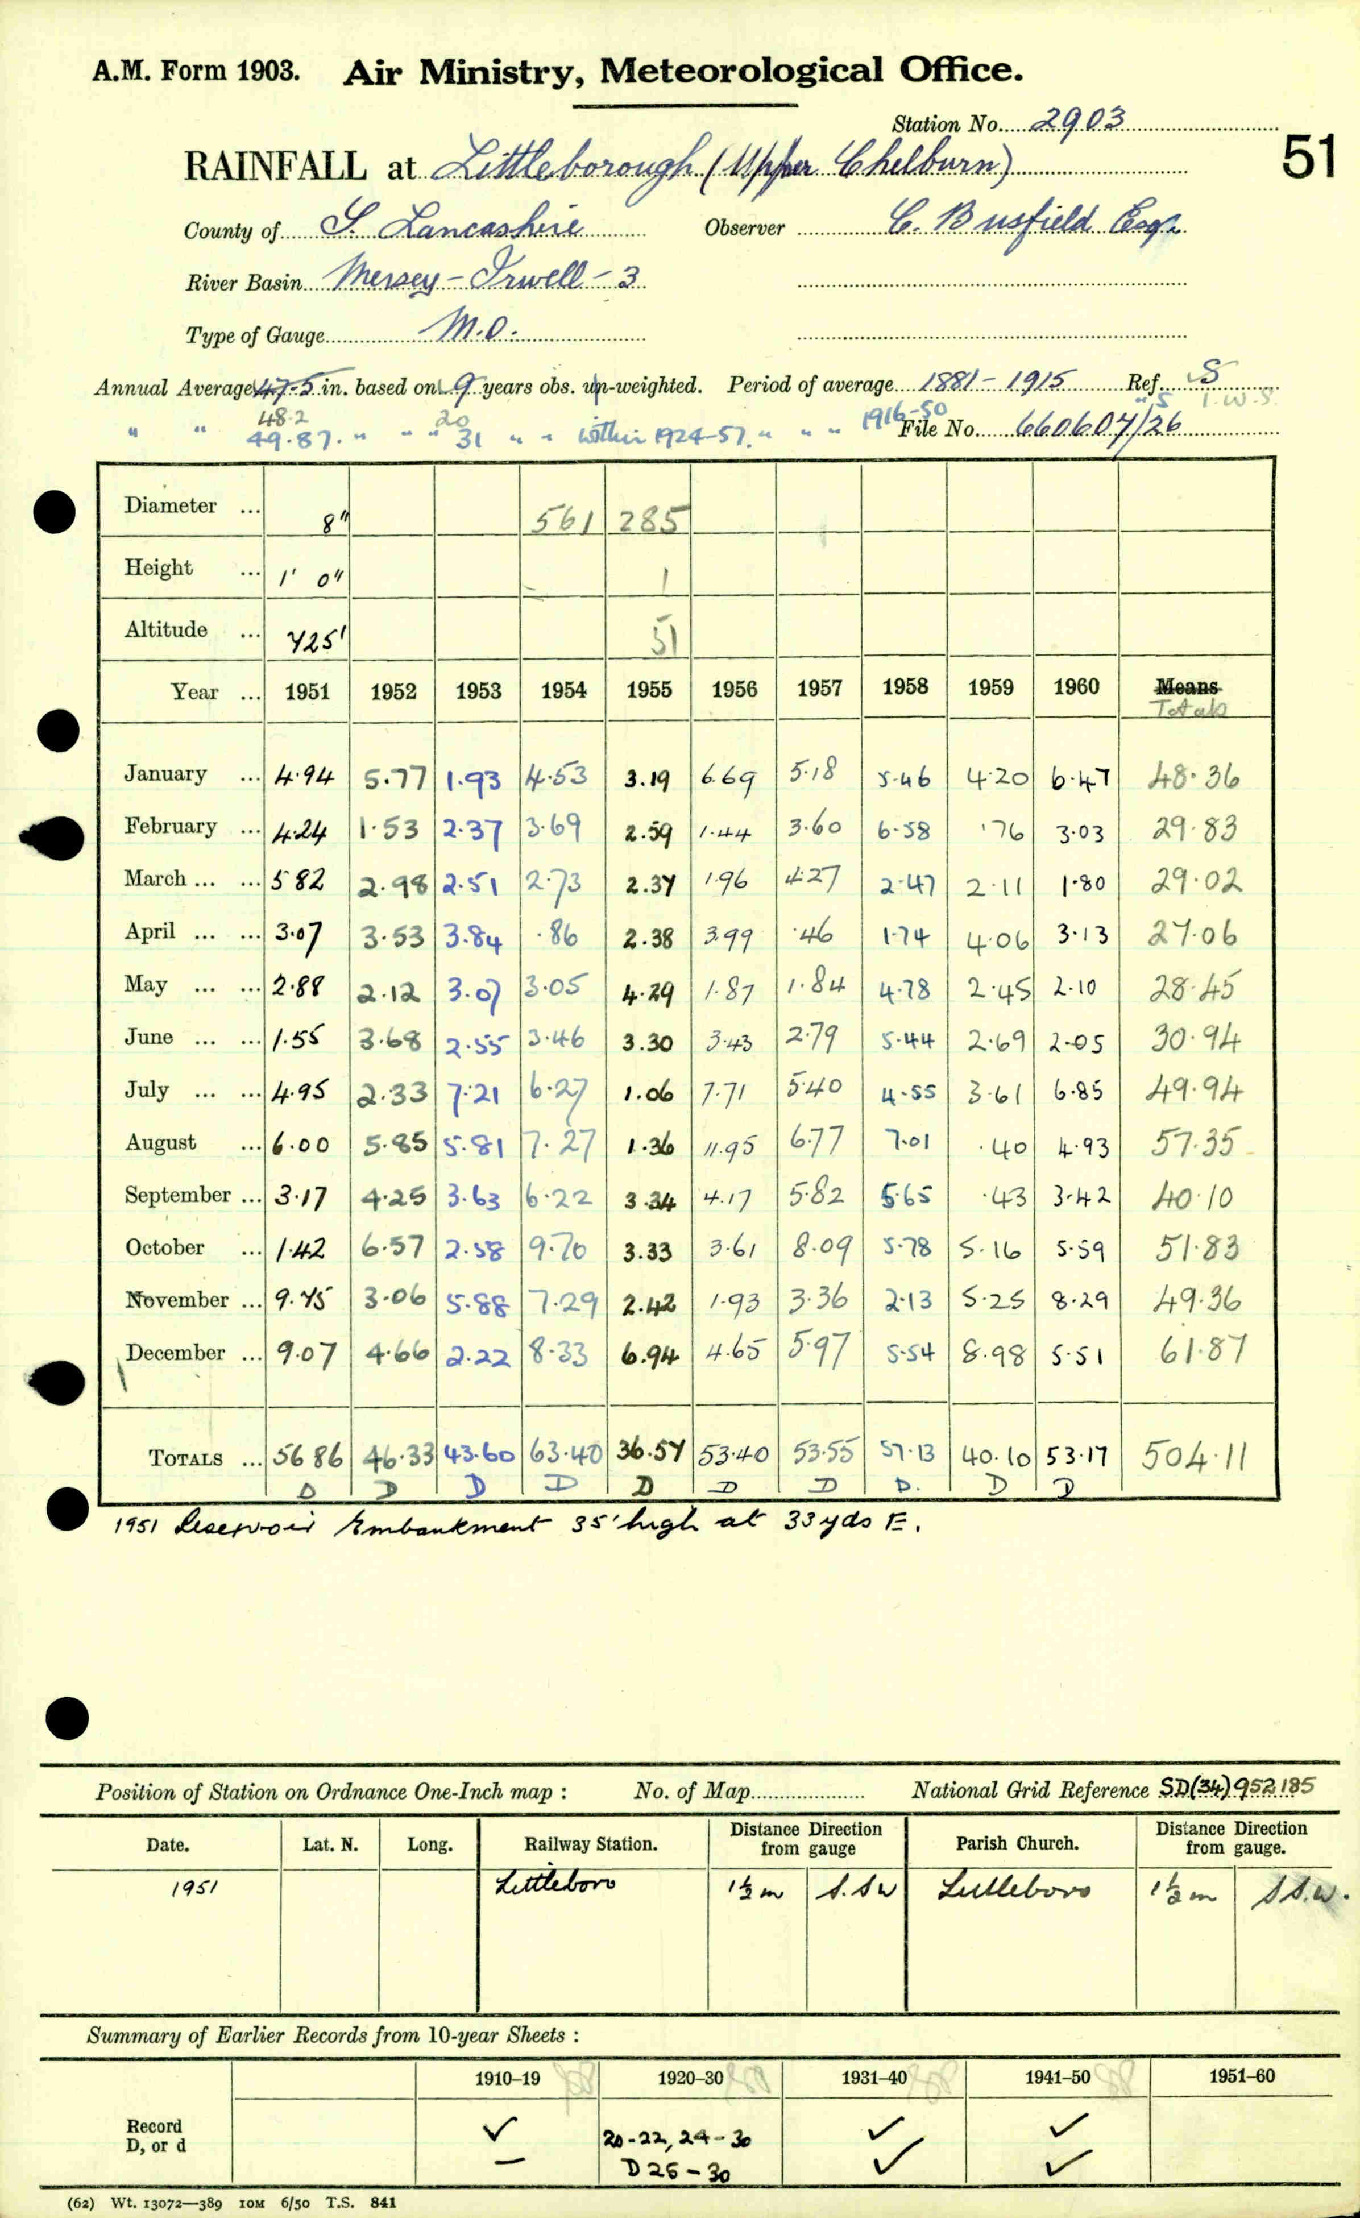 A.M. Form 1903. Air Ministry, Meteorological Office.
Station No. 2903
51
RAINFALL at Littleborough (Upper Chelburn)
County of S. Lancashire Observer C. Busfield Esq.
River Basin Mersey - Irwell - 3
Type of Gauge M.O.
Annual Average 47.5 in. based on 19 years obs. un-weighted. Period of average 1881-1915 Ref. S
48.2 20 1916-50 "S
" " 49.87. " " " 31 " " within 1924-57. " " " File No. 660607/26
Diameter ... 8" 561 285
Height ... 1' 0" 1
Altitude ... 725' 51
Year ... 1951 1952 1953 1954 1955 1956 1957 1958 1959 1960 Means
Totals
January ... 4.94 5.77 1.93 4.53 3.19 6.69 5.18 5.46 4.20 6.47 48.36
February ... 4.24 1.53 2.37 3.69 2.59 1.44 3.60 6.58 .76 3.03 29.83
March ... ... 5 82 2.98 2.51 2.73 2.37 1.96 4.27 2.47 2.11 1.80 29.02
April ... ... 3.07 3.53 3.84 .86 2.38 3.99 .46 1.74 4.06 3.13 27.06
May ... ... 2.88 2.12 3.07 3.05 4.29 1.87 1.84 4.78 2.45 2.10 28.45
June ... ... 1.55 3.68 2.55 3.46 3.30 3.43 2.79 5.44 2.69 2.05 30.94
July ... ... 4.95 2.33 7.21 6.27 1.06 7.71 5.40 4.55 3.61 6.85 49.94
August ... 6.00 5.85 5.81 7.27 1.36 11.95 6.77 7.01 .40 4.93 57.35
September ... 3.17 4.25 3.63 6.22 3.34 4.17 5.82 5.65 .43 3.42 40.10
October ... 1.42 6.57 2.58 9.70 3.33 3.61 8.09 5.78 5.16 5.59 51.83
November ... 9.75 3.06 5.88 7.29 2.42 1.93 3.36 2.13 5.25 8.29 49.36
December ... 9.07 4.66 2.22 8.33 6.94 4.65 5.97 5.54 8.98 5.51 61.87
TOTALS ... 56 86 46.33 43.60 63.40 36.57 53.40 53.55 57.13 40.10 53.17 504.11
D D D D D D D D. D D
1951 Reservoir Embankment 35' high at 33 yds E.
Position of Station on Ordnance One-Inch map : No. of Map National Grid Reference SD(34)952185
Date. Lat. N. Long. Railway Station. Distance Direction from gauge Parish Church. Distance Direction from gauge.
1951 Littleboro 1½ m S.SW Littleboro 1½ m S S.W.
Summary of Earlier Records from 10-year Sheets :
1910–19 1920–30 1931–40 1941–50 1951–60
Record ✓ 20-22, 24-30 ✓ ✓
D, or d – D 25-30 ✓ ✓
(62) Wt. 13072—389 10M 6/50 T.S. 841